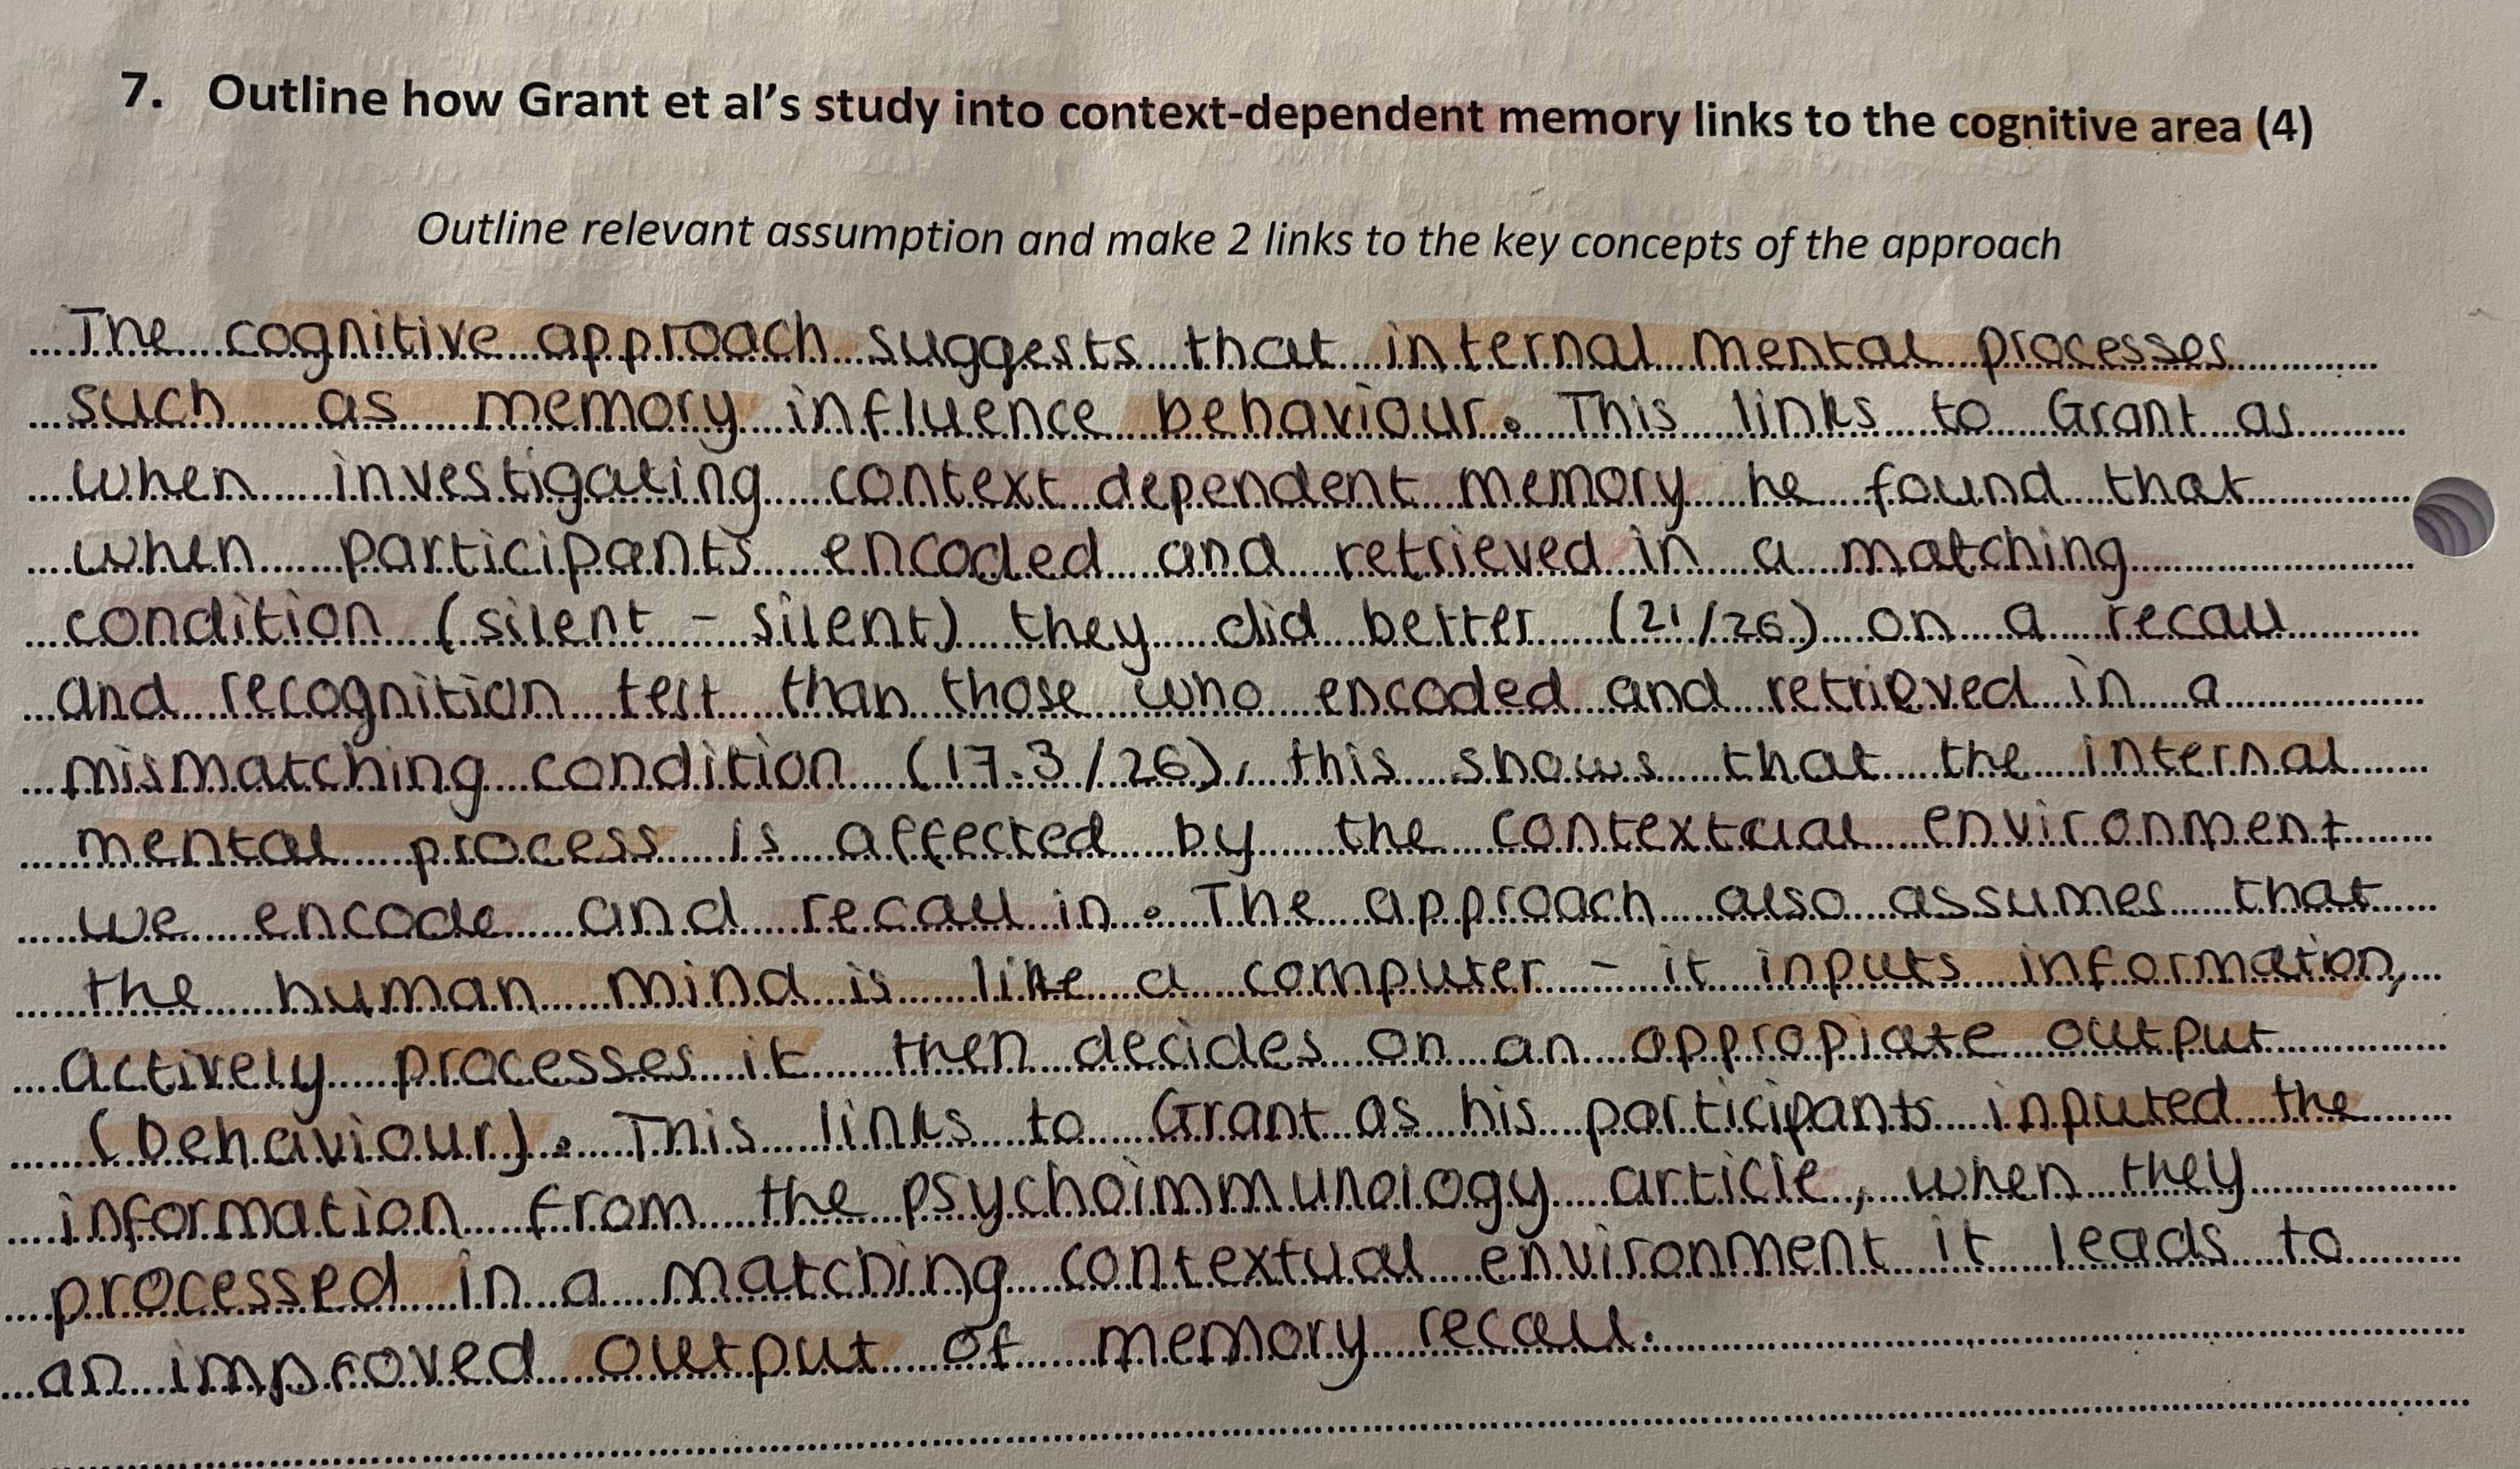 7. Outline how Grant et al's study into context-dependent memory links to the cognitive area (4)
Outline relevant assumption and make 2 links to the key concepts of the approach
The cognitive approach suggests that internal mental processes
such as memory influence behaviour. This links to Grant as
when investigating context dependent memory he found that
when participants encoded and retrieved in a matching
condition (silent - silent) they did better (21/26) on a recall
and recognition test than those who encoded and retrieved in a
mismatching condition (17.3/26), this shows that the internal
mental process is affected by the contextual environment
we encode and recall in. The approach also assumes that
the human mind is like a computer - it inputs information,
actively processes it then decides on an appropiate output
(behaviour). This links to Grant as his participants inputed the
information from the psychoimmunology article, when they
processed in a matching contextual environment it leads to
an improved output of memory recall.